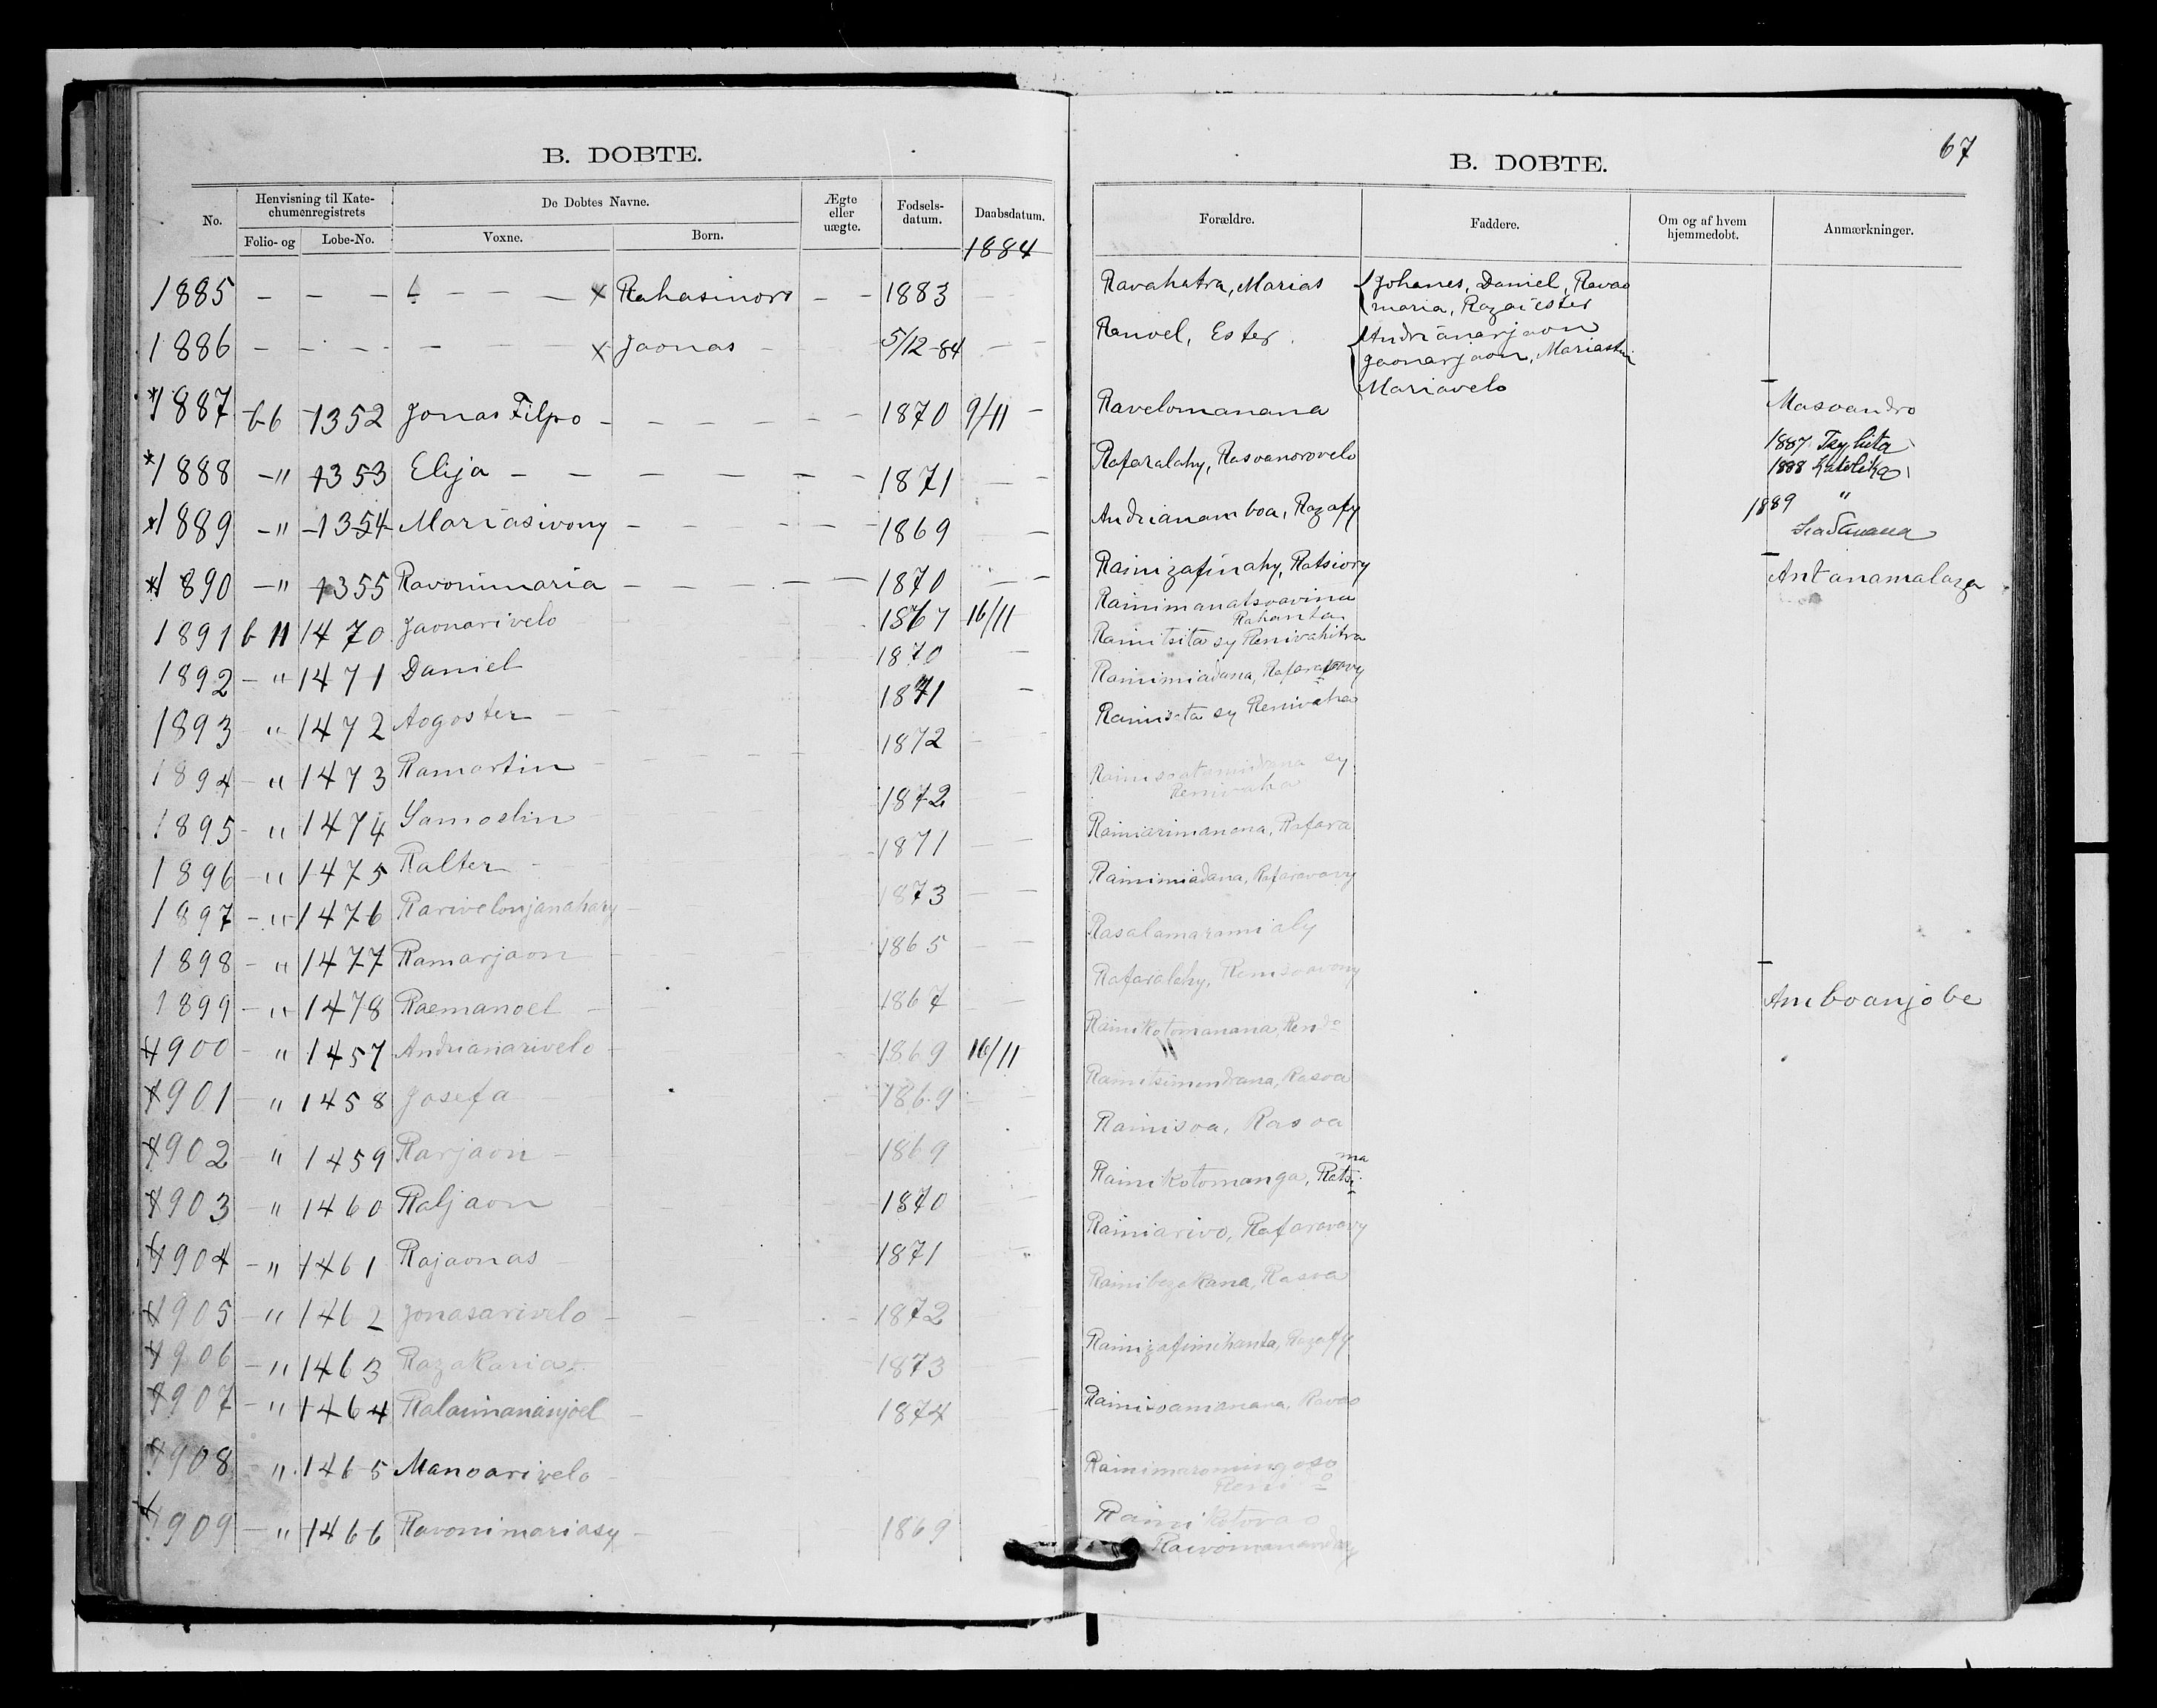 B. DOBTE.
No. Henvisning til Kate-chumenregistrets De Dobtes Navne. Ægte eller uægte. Fodsels-datum. Daabsdatum.
Folio- og Lobe-No. Voxne. Born. 1884
1885 - - - - - - x Rahasinoro - - 1883 - -
1886 - - - - - - x Jaonas - 5/12-84 - -
*1887 66 1352 Jonas Filpo - - - - - - 1870 9/11 -
*1888 -" 1353 Elija - - - - - - - 1871 - -
*1889 -" 1354 Mariasivony - - - - - 1869 -
*1890 -" 1355 Ravonimaria - - - - - 1870 - -
1891 6 11 1470 Jaonarivelo 1867 16/11
1892 - " 1471 Daniel 1870 -
1893 " 1472 Aogoster - 1871 -
1894 - " 1473 Ramartin - 1872 -
1895 - " 1474 Samoelin 1872 - -
1896 - " 1475 Ralter - 1871 - -
1897 - " 1476 Rarivelonjanahary - 1873 - -
1898 - " 1477 Ramarjaon - 1865 - -
1899 - " 1478 Raemanoel - 1867 -
*1900 - " 1457 Andrianarivelo - 1869 16/11
*1901 " 1458 Josefa - 1869 -
*1902 - " 1459 Rarjaon - 1869
*1903 - " 1460 Raljaon - 1870
*1904 - " 1461 Rajaonas - 1871
*1905 - " 1462 Jonasarivelo - 1872
*1906 - " 1463 Razakarias 1873 -
*1907 - " 1464 Ralaimananjoel - 1874 -
*1908 " 1465 Manoarivelo -
*1909 - " 1466 Ravonimariasy - 1869
67
B. DOBTE.
Forældre. Faddere. Om og af hvem hjemmedobt. Anmærkninger.
Ravahatra, Marias Johanes, Daniel, Ravao
maria, Razaiester
Ranoel, Ester Andrianarjaon
Jaonarjaon,
Mariavelo
Ravelomanana Masoandro
Rafaralahy, Rasoanorovelo 1887
1888 Katolika
Andrianamboa, Razafy 1889 "
Rainizafinahy, Ratsiory Antanamalaza
Rainimanatsoavina
Rahanta
Rainitsita sy Renivahitra
Rainimiadana, Rafaravavy
Rainisata sy Renivaha
sy
Renivaha
Rainiarimanana, Rafara
Rainimiadana, Rafaravavy
Rafaralahy, Renisoavony
Rainikotomanana, Amboanjobe
Rainitsimendrana, Rasoa
Rainisoa, Rasoa
Rainikotomanga, Ratsi
ma
Rainiarivo, Rafaravavy
Rainibozakana, Rasoa
Rainizafimihanta, Razafy
Rainisoamanana, Ravao
Reni
Rainikotovao